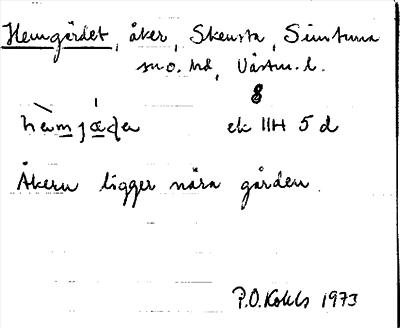 Hemgärdet, åker, Skensta, Simtuna
sn o. hd, Västm. l.
8
hèmjáɖa ek 11H 5 d
Åkern ligger nära gården.
P.O. Kohls 1973